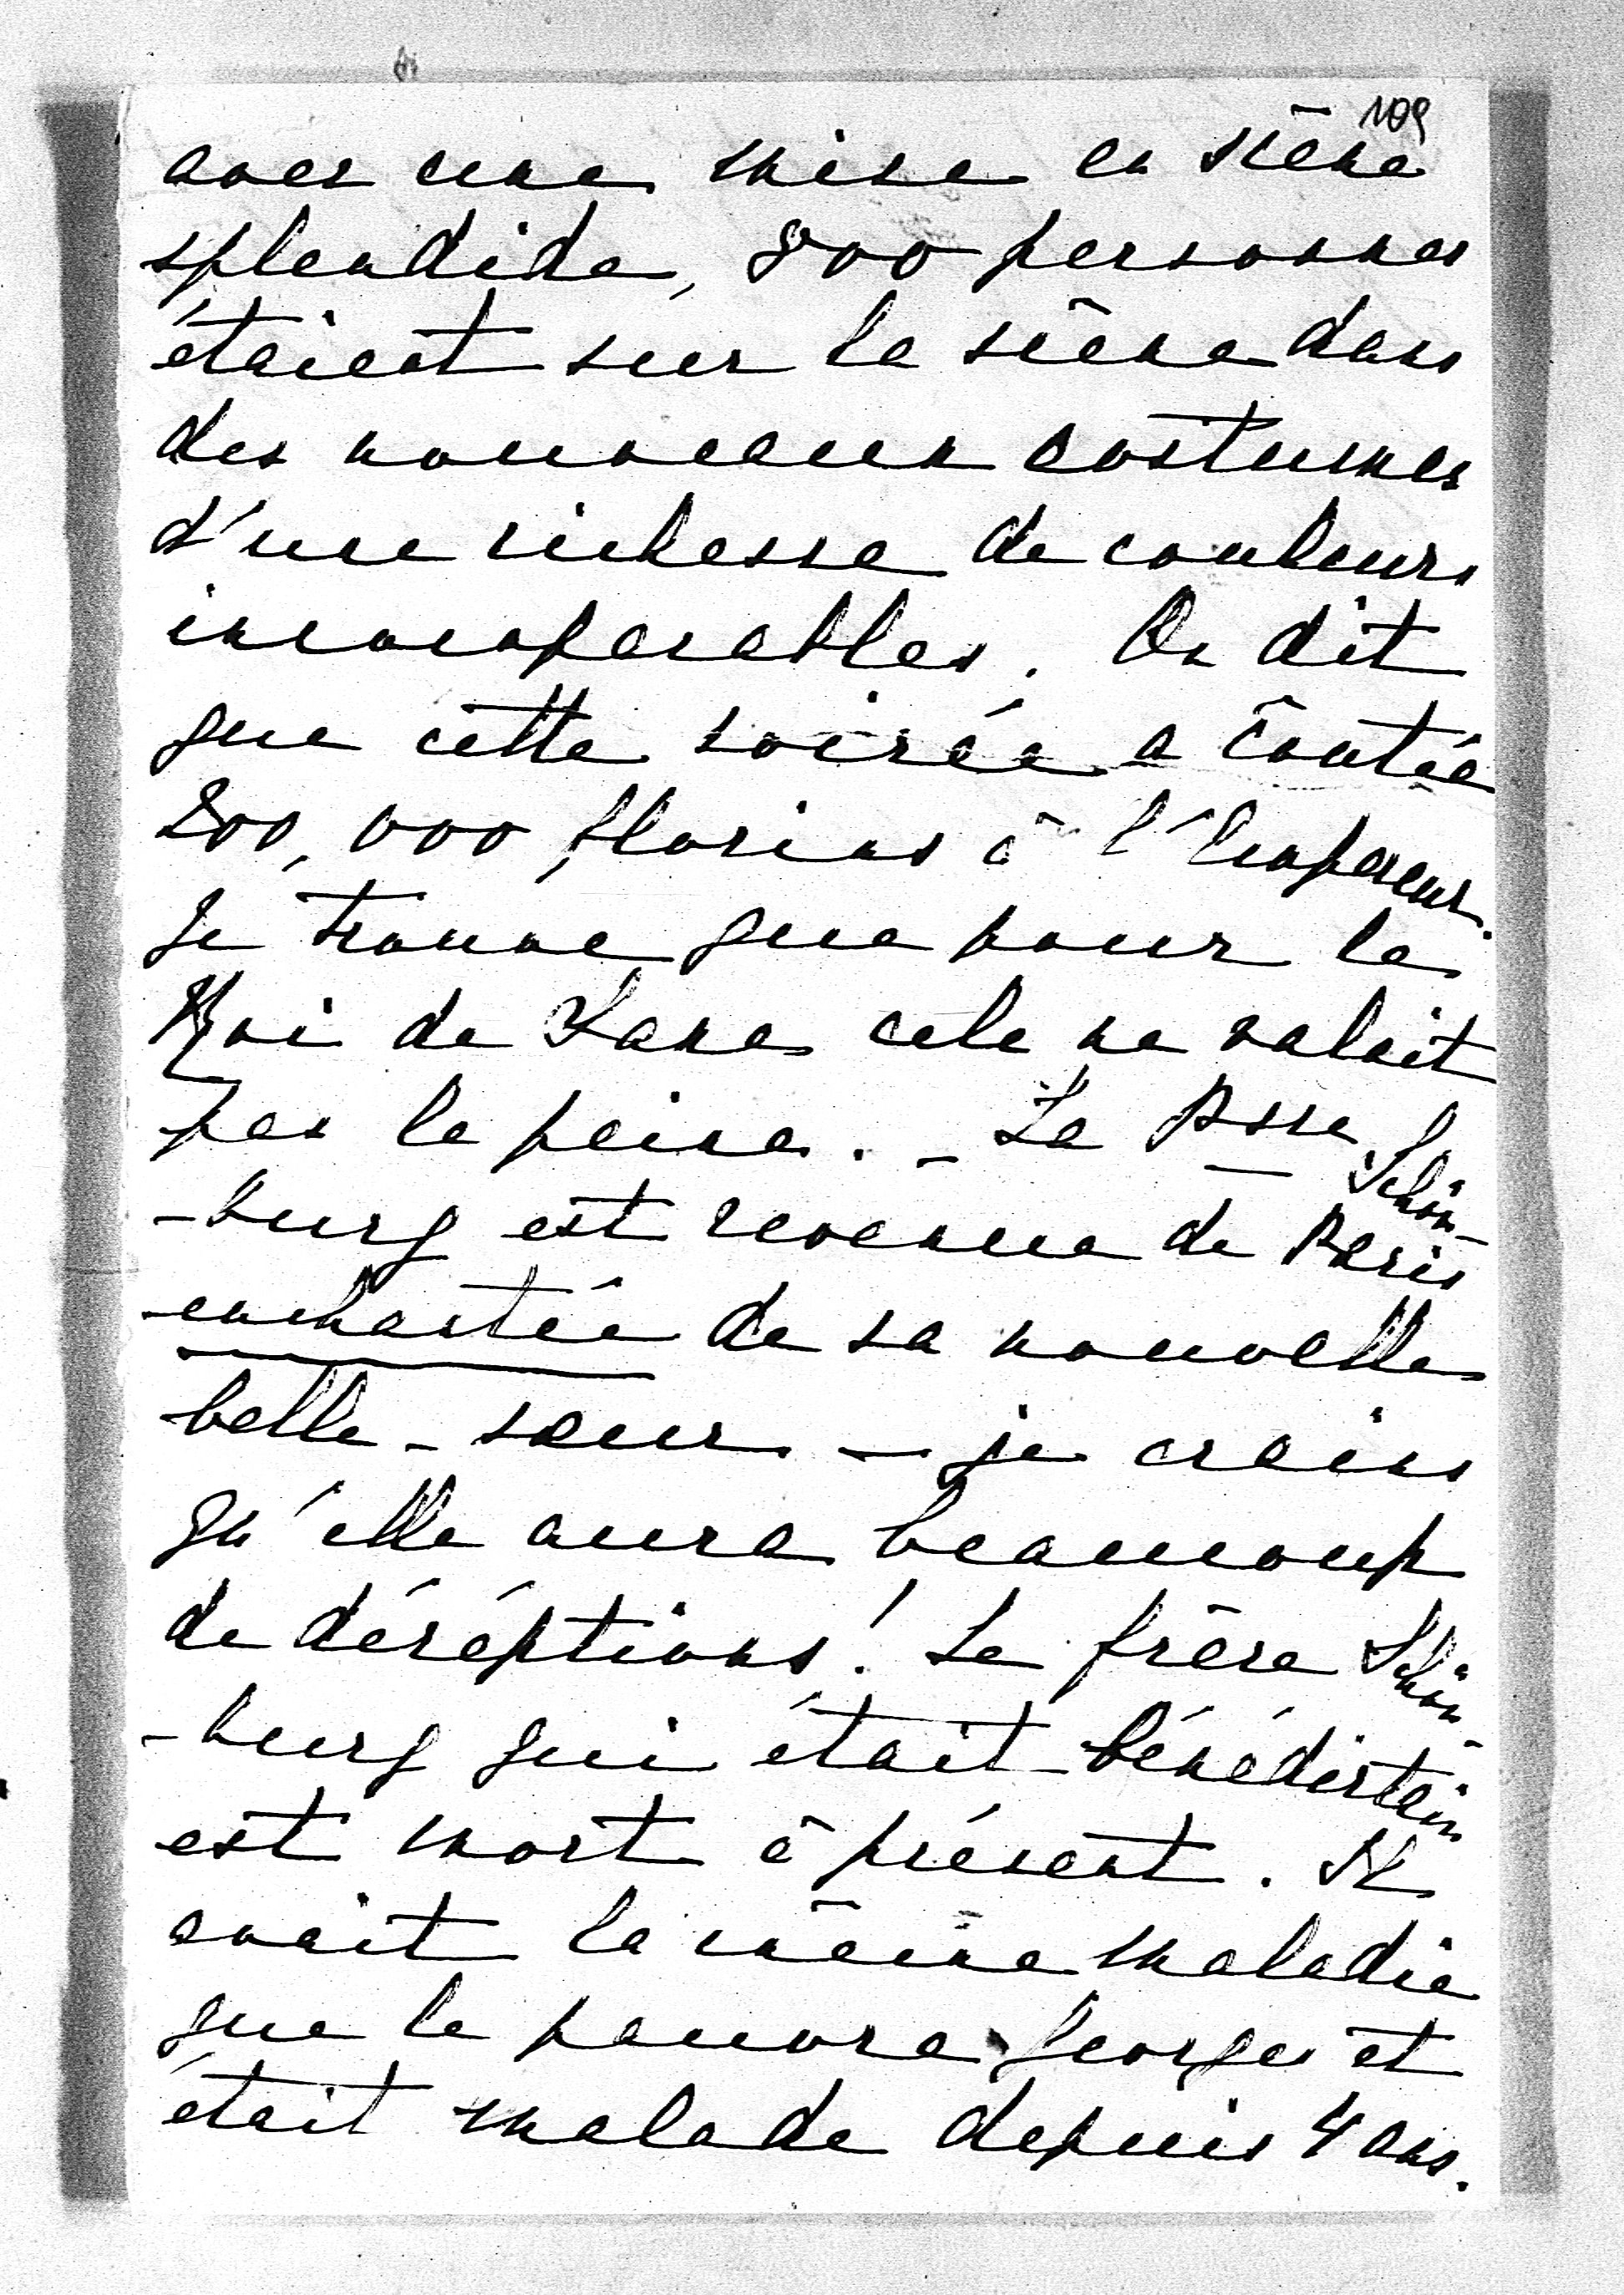 109
avec une mise en scène
splendide, 800 personnes
étaient sur la scène dans
des nouveaux costumes
d'une richesse de couleurs
incomparables. On dit
que cette soirée a coutée
200,000 florins à l'Empereur.
Je trouve que pour le
Roi de Saxe cela ne valait
pas la peine. - La Psse Schön-
-burg est revenue de Paris
enchantée de sa nouvelle
belle-sœur - je crains
qu'elle aura beaucoup
de décéptions! Le frère Schön-
-burg qui était bénédictain
est mort à présent. Il
avait la même maladie
que le pauvre Georges et
était malade depuis 4 ans.